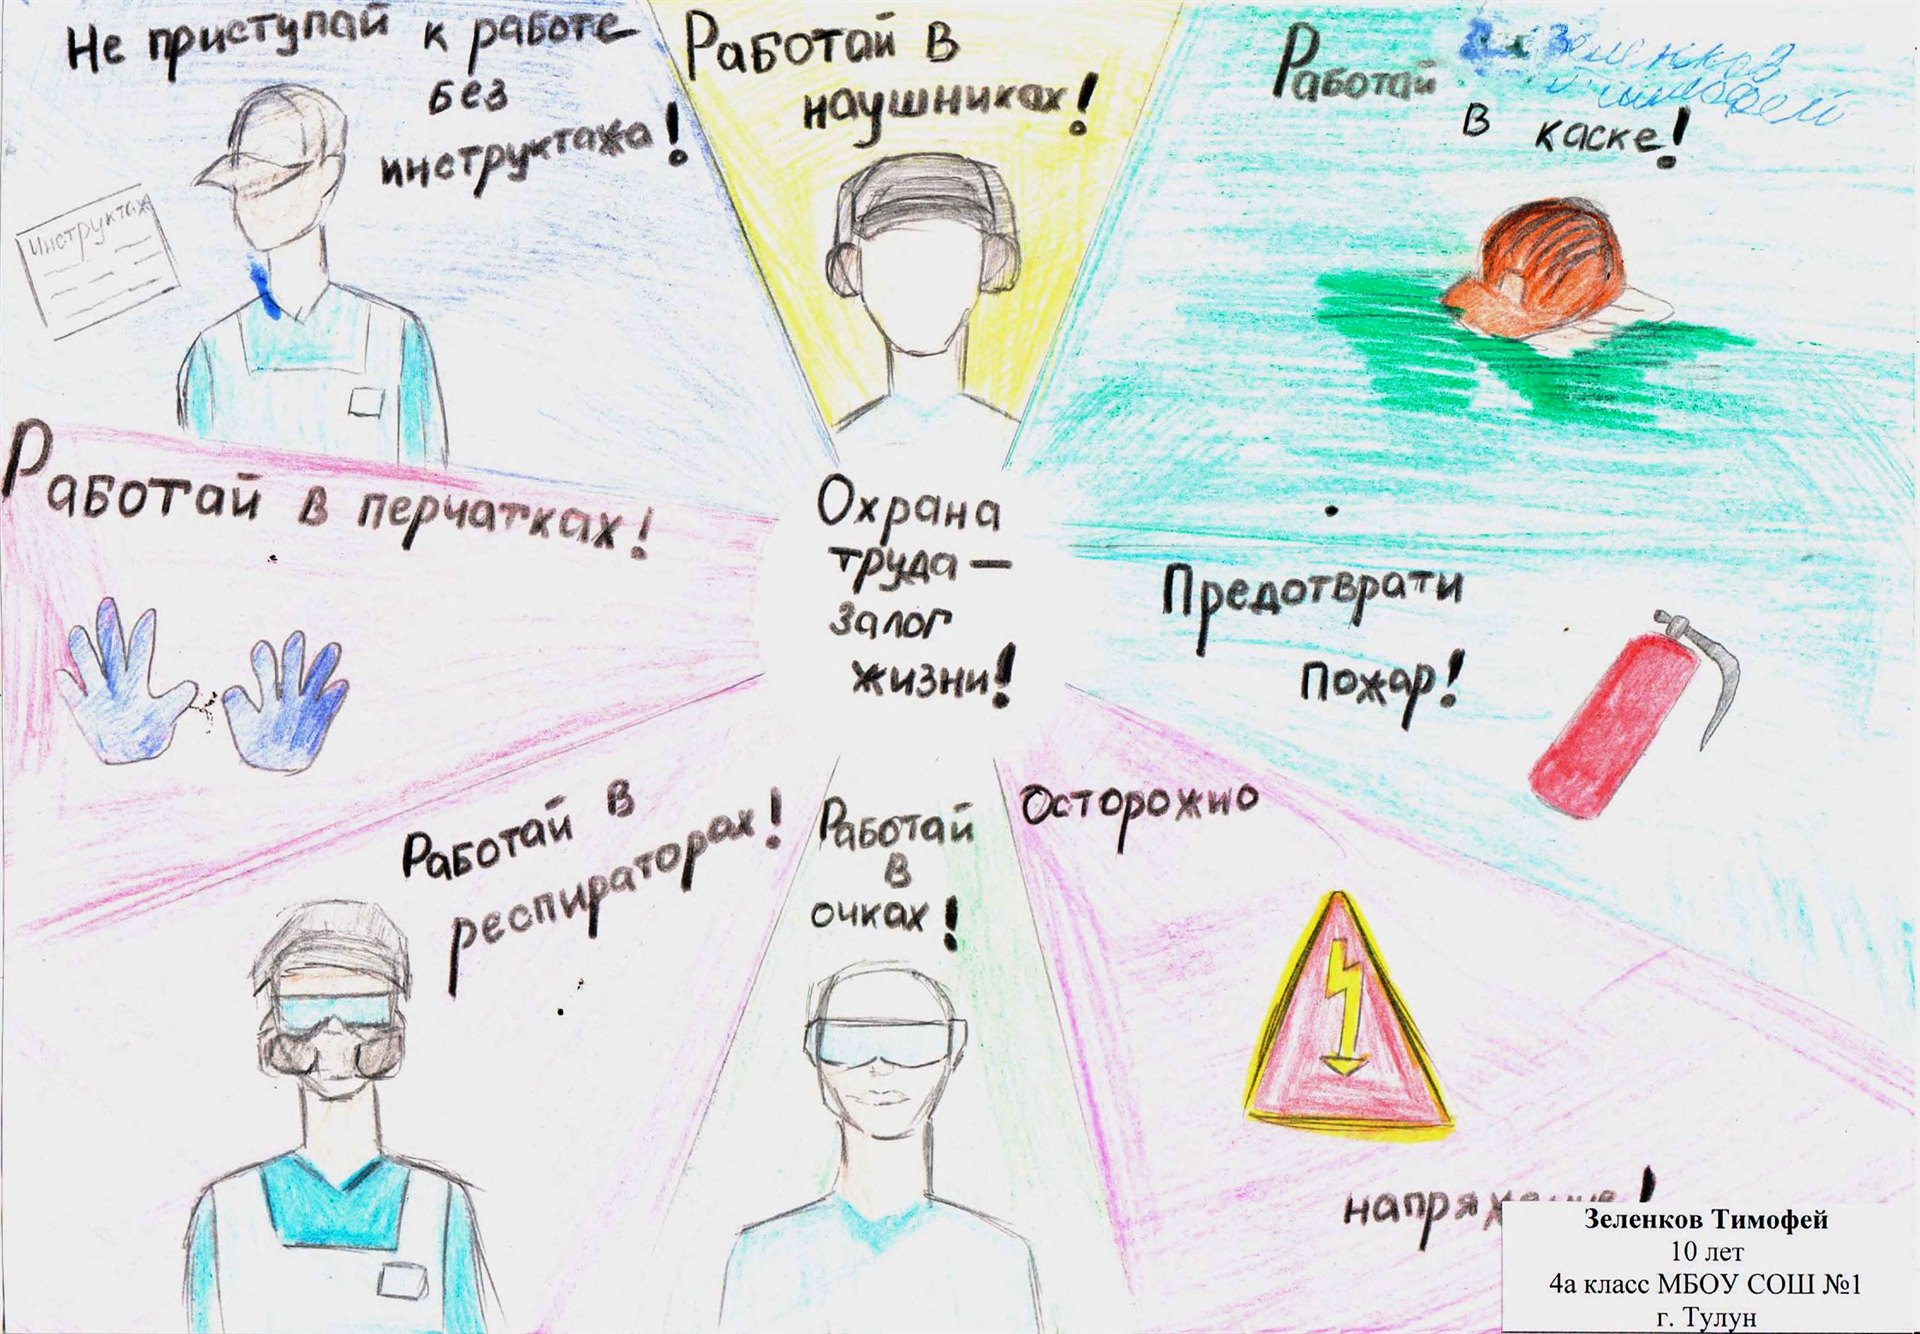 Не приступай к работе
без
инструктажа!
Инструктаж
Работай в
наушниках!
Работай
в каске!
Зеленков
Тимофей
Работай в перчатках!
Охрана
труда –
залог
жизни!
Предотврати
пожар!
Работай в
респираторах!
Работай
в
очках!
Осторожно
напряжение!
Зеленков Тимофей
10 лет
4а класс МБОУ СОШ №1
г. Тулун